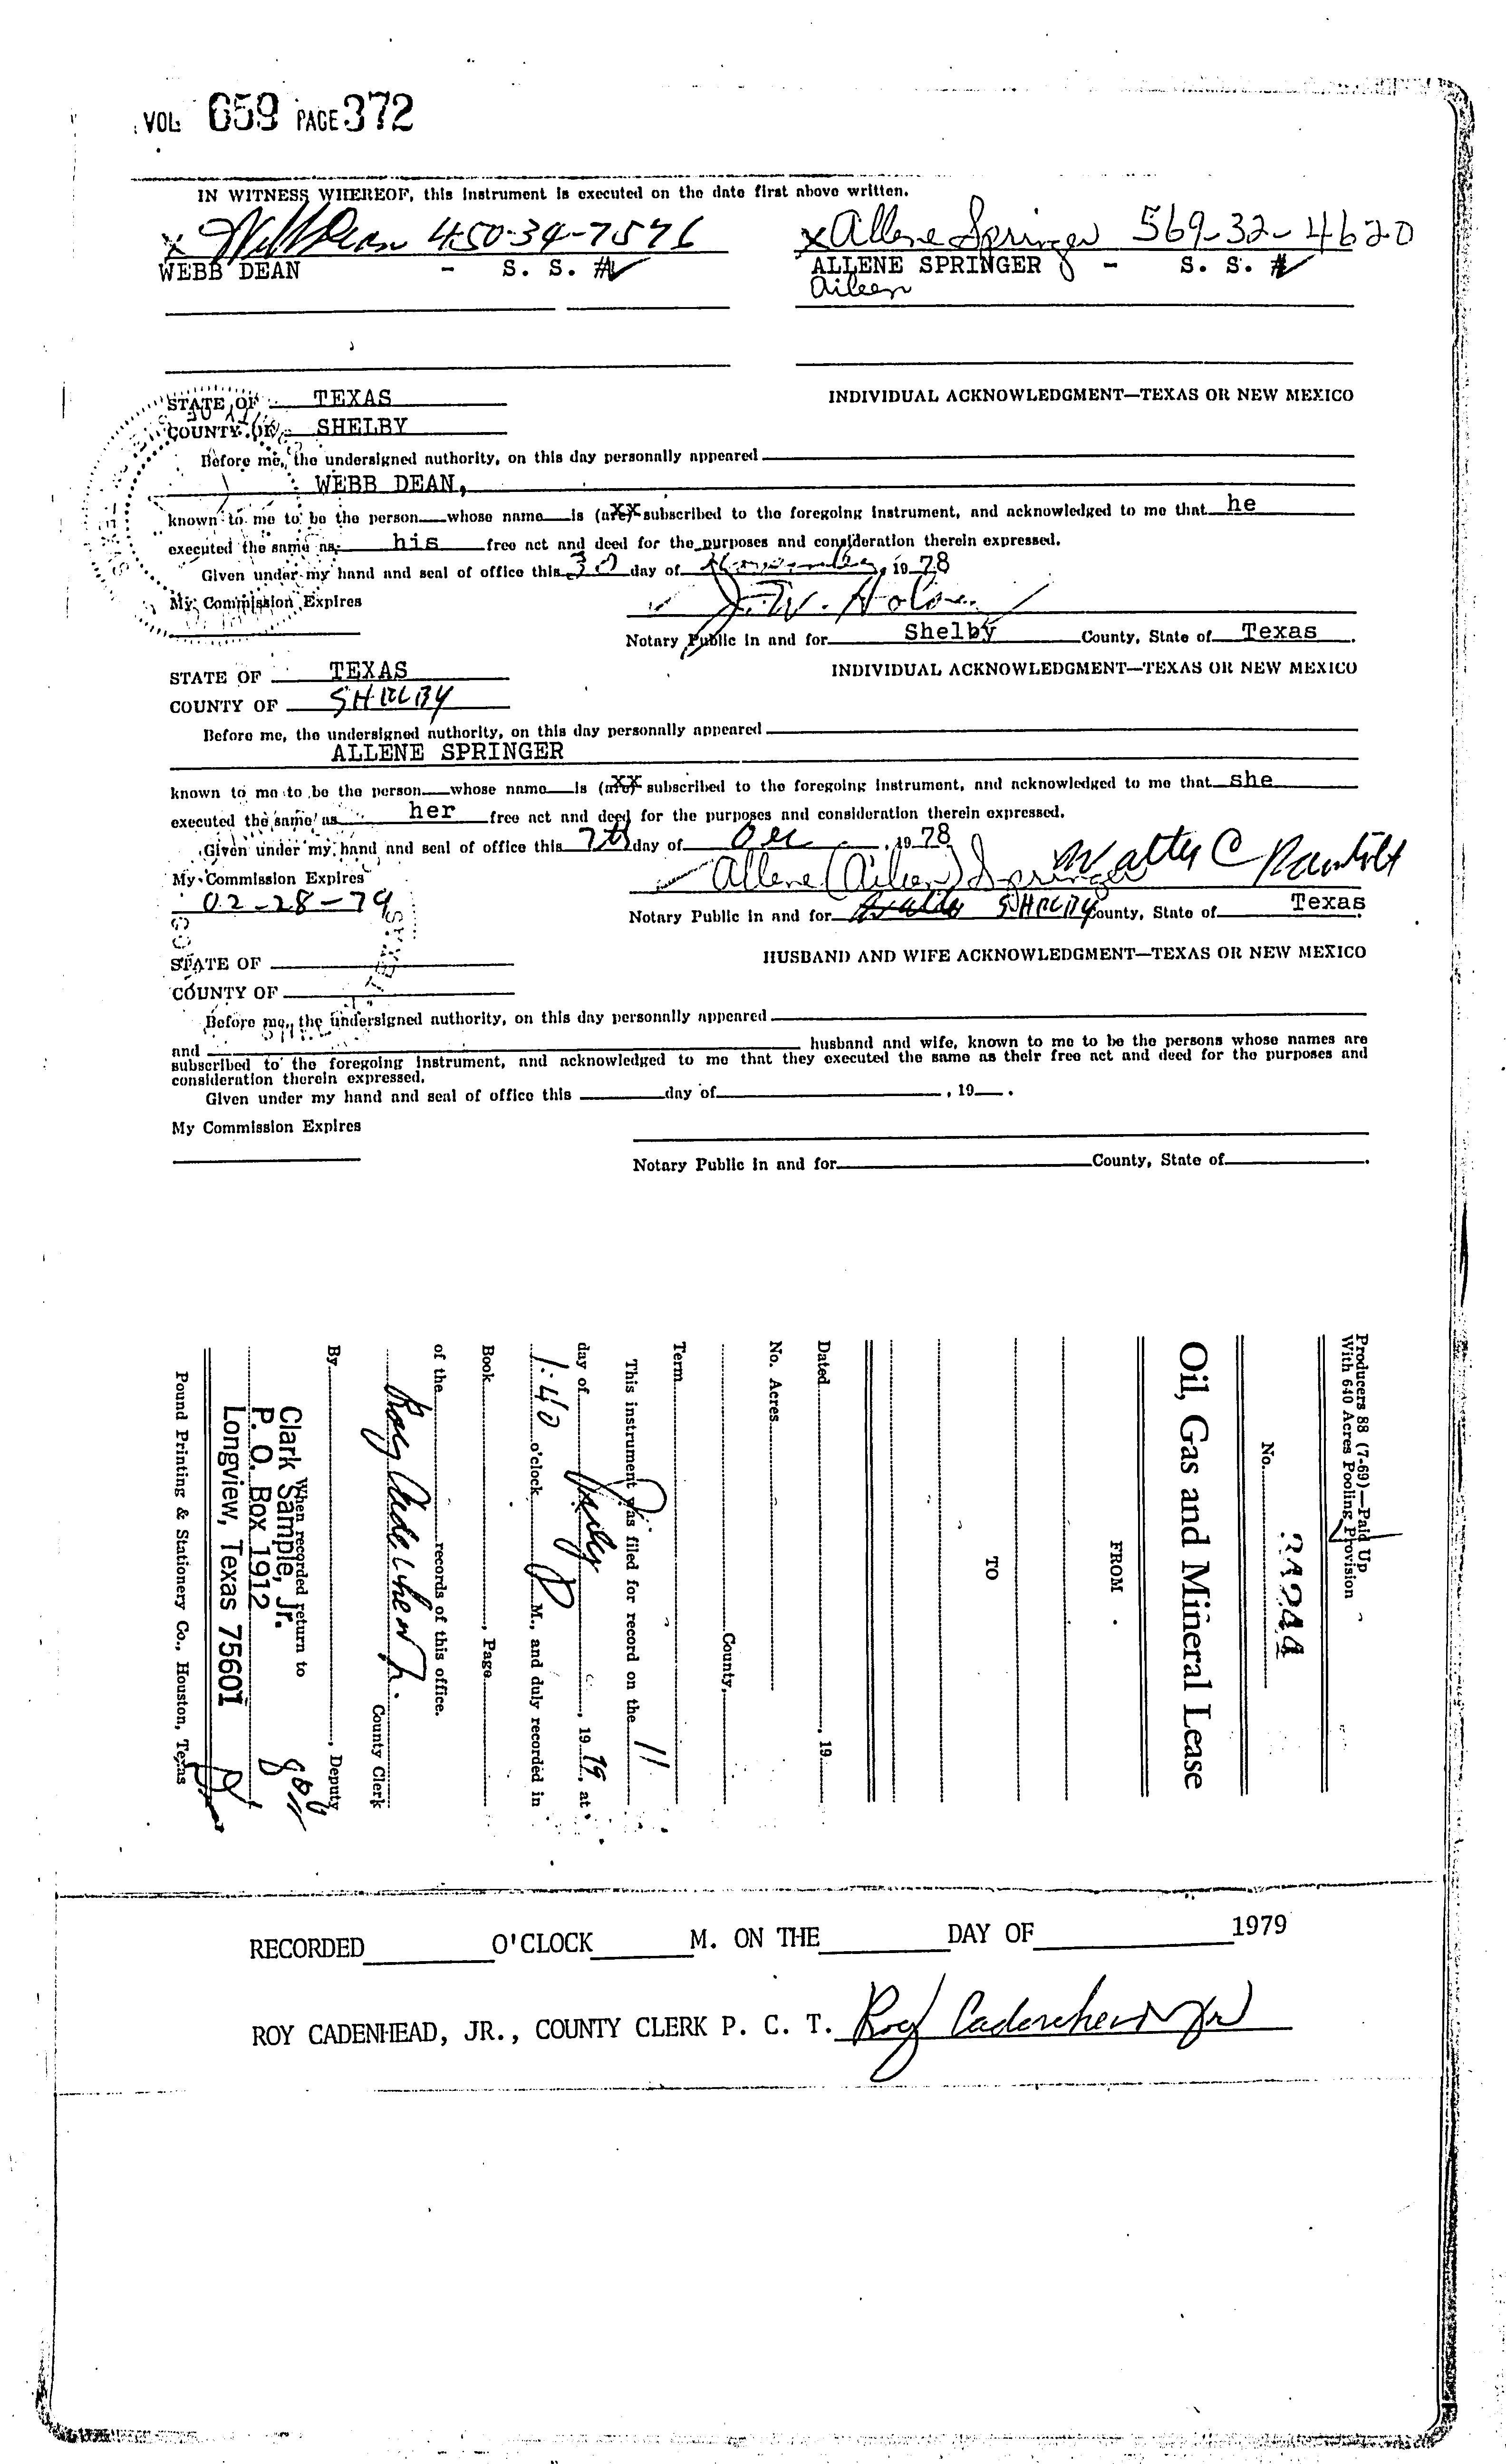 VOL 659 PAGE 372
IN WITNESS WHEREOF, this instrument is executed on the date first above written.
x Webb Dean 450-34-7576 x Allene Springer 569-32-4620
WEBB DEAN - S. S. # ALLENE SPRINGER - S. S. #
Aileen
STATE OF TEXAS INDIVIDUAL ACKNOWLEDGMENT—TEXAS OR NEW MEXICO
COUNTY OF SHELBY
Before me, the undersigned authority, on this day personally appeared
WEBB DEAN,
known to me to be the person whose name is (are) xx subscribed to the foregoing instrument, and acknowledged to me that he
executed the same as his free act and deed for the purposes and consideration therein expressed.
Given under my hand and seal of office this 30 day of November, 1978
My Commission Expires
Notary Public in and for Shelby County, State of Texas.
STATE OF TEXAS INDIVIDUAL ACKNOWLEDGMENT—TEXAS OR NEW MEXICO
COUNTY OF SHELBY
Before me, the undersigned authority, on this day personally appeared
ALLENE SPRINGER
known to me to be the person whose name is (are) xx subscribed to the foregoing instrument, and acknowledged to me that she
executed the same as her free act and deed for the purposes and consideration therein expressed.
Given under my hand and seal of office this 7th day of Dec, 1978
My Commission Expires Allene (Aileen) Springer Walter C
02-28-79
Notary Public in and for SHELBY County, State of Texas.
STATE OF HUSBAND AND WIFE ACKNOWLEDGMENT—TEXAS OR NEW MEXICO
COUNTY OF
Before me, the undersigned authority, on this day personally appeared
and husband and wife, known to me to be the persons whose names are
subscribed to the foregoing instrument, and acknowledged to me that they executed the same as their free act and deed for the purposes and
consideration therein expressed.
Given under my hand and seal of office this day of , 19 .
My Commission Expires
Notary Public in and for County, State of .
Producers 88 (7-69)—Paid Up
With 640 Acres Pooling Provision
No.
Oil, Gas and Mineral Lease
FROM
TO
Dated , 19
No. Acres
County,
Term
This instrument was filed for record on the 11
day of July, 1979, at
1:40 o'clock P M., and duly recorded in
Book , Page
of the records of this office.
Roy Cadenhead Jr.
County Clerk
By , Deputy
When recorded return to
Clark Sample, Jr.
P. O. Box 1912
Longview, Texas 75601
Pound Printing & Stationery Co., Houston, Texas
RECORDED O'CLOCK M. ON THE DAY OF 1979
ROY CADENHEAD, JR., COUNTY CLERK P. C. T. Roy Cadenhead Jr